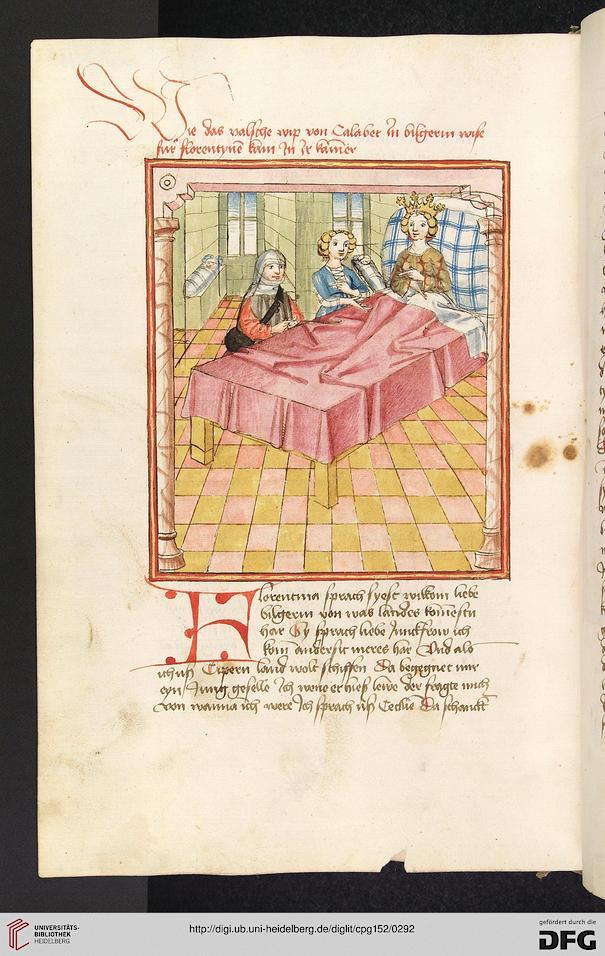 Wie das valsche wip von Calaber in bilgerin wise
fur florentyne kam In Ir kamer
Florentina sprach syest wilkom liebe
bilgerin von was landes komestu
har Sy sprach liebe Junckfrow ich
kom andersit meres har Vnd als
ich usz Cipern land wolt schiffen Da begegnet mir
eyn Jung geselle Ich wene er hiesz lewe der fragte mich
von wanna ich were Ich sprach usz Cecilie Da schanckt
UNIVERSITÄTS-
BIBLIOTHEK
HEIDELBERG
http://digi.ub.uni-heidelberg.de/diglit/cpg152/0292
gefördert durch die
DFG